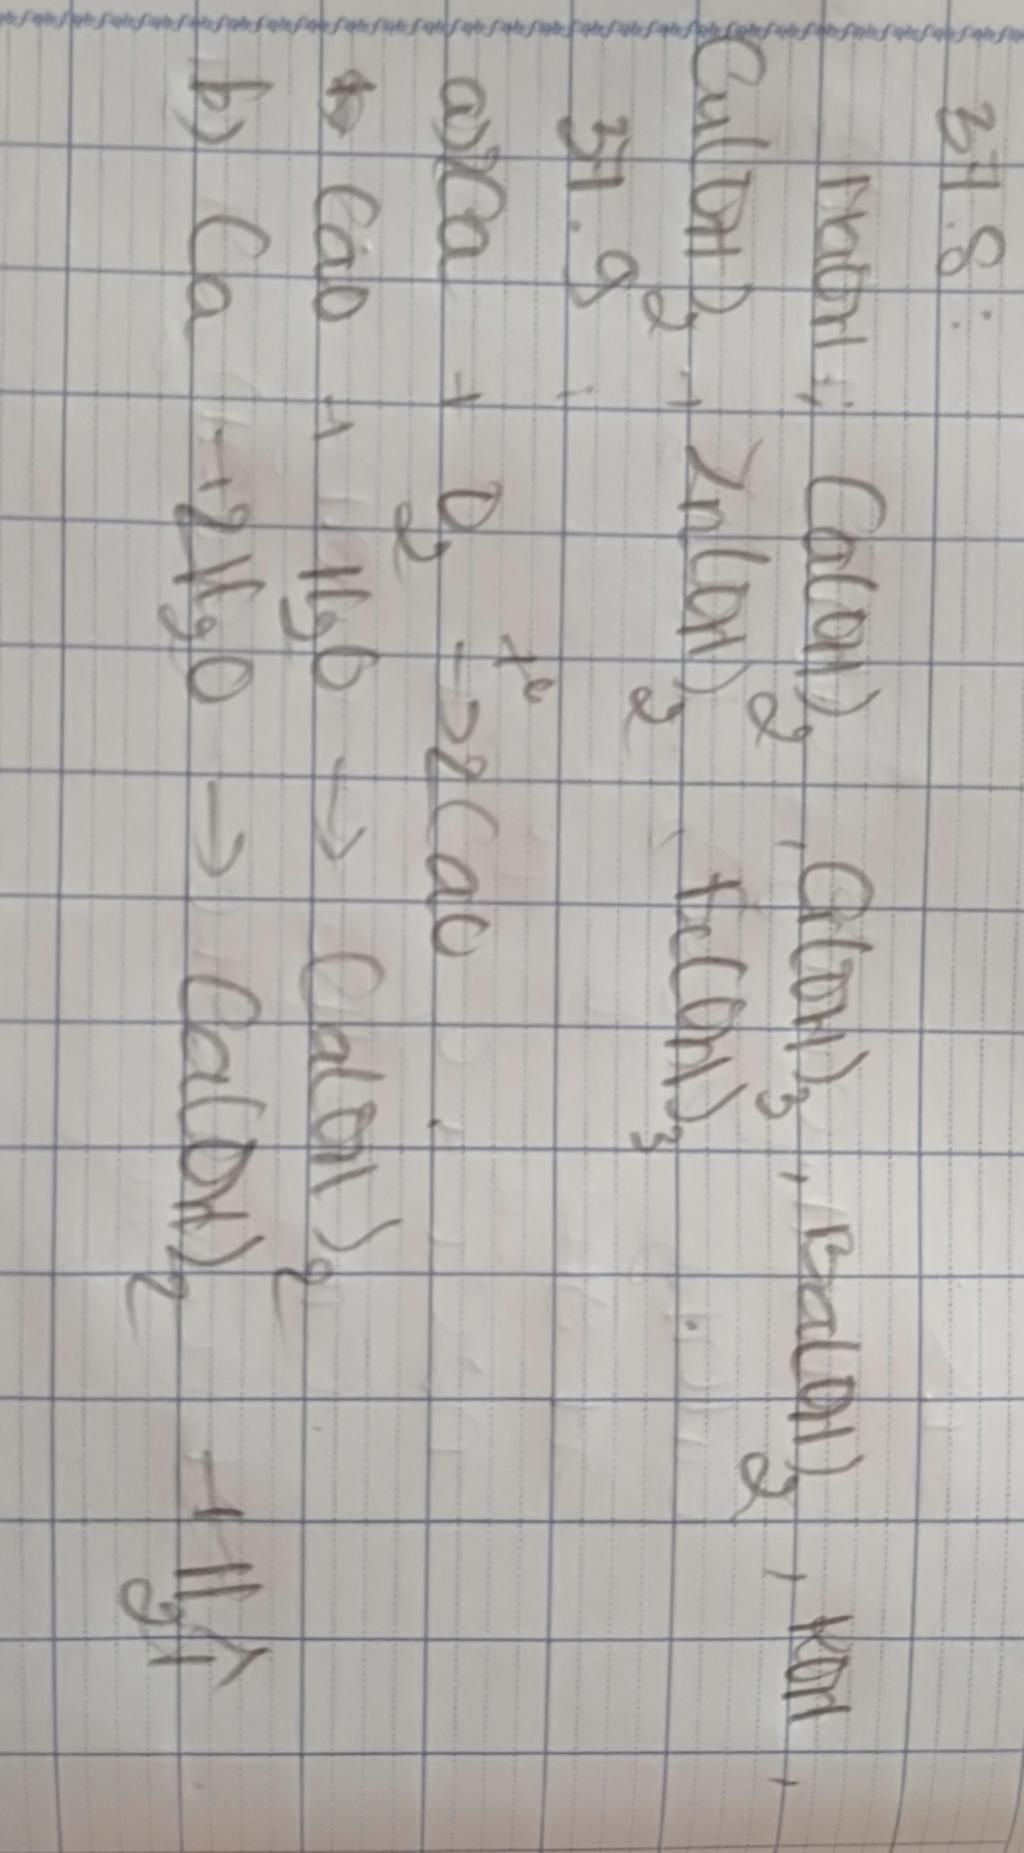 37.8:
NaOH; Ca(OH)₂, Cr(OH)₃, Ba(OH)₂, KOH,
Cu(OH)₂, Zn(OH)₂, Fe(OH)₃.
37.9:
a) 2Ca + O₂ t° → 2CaO
CaO + H₂O → Ca(OH)₂
b) Ca + 2H₂O → Ca(OH)₂ + H₂↑